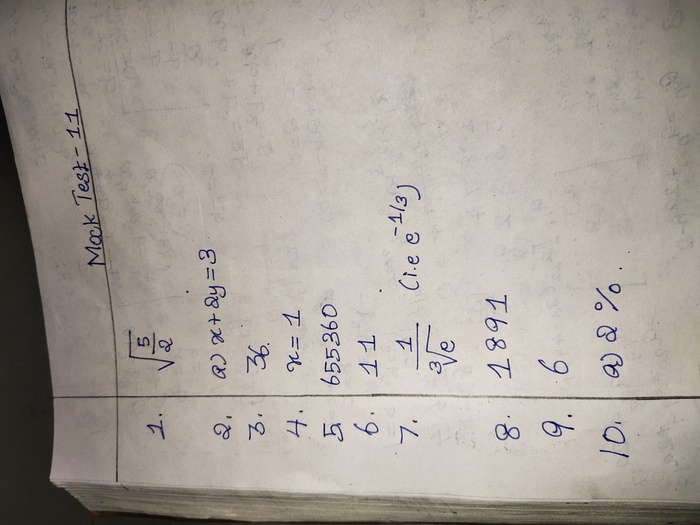 Mock Test - 11
1. √(5/2)
2. a) x+2y=3
3. 36.
4. x= 1
5. 655360
6. 11
7. 1/∛e (i.e e^-1/3)
8. 1891
9. 6
10. a) 2 %.